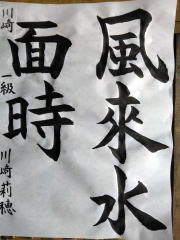 風來水
面時
川崎 一級 川崎莉穂